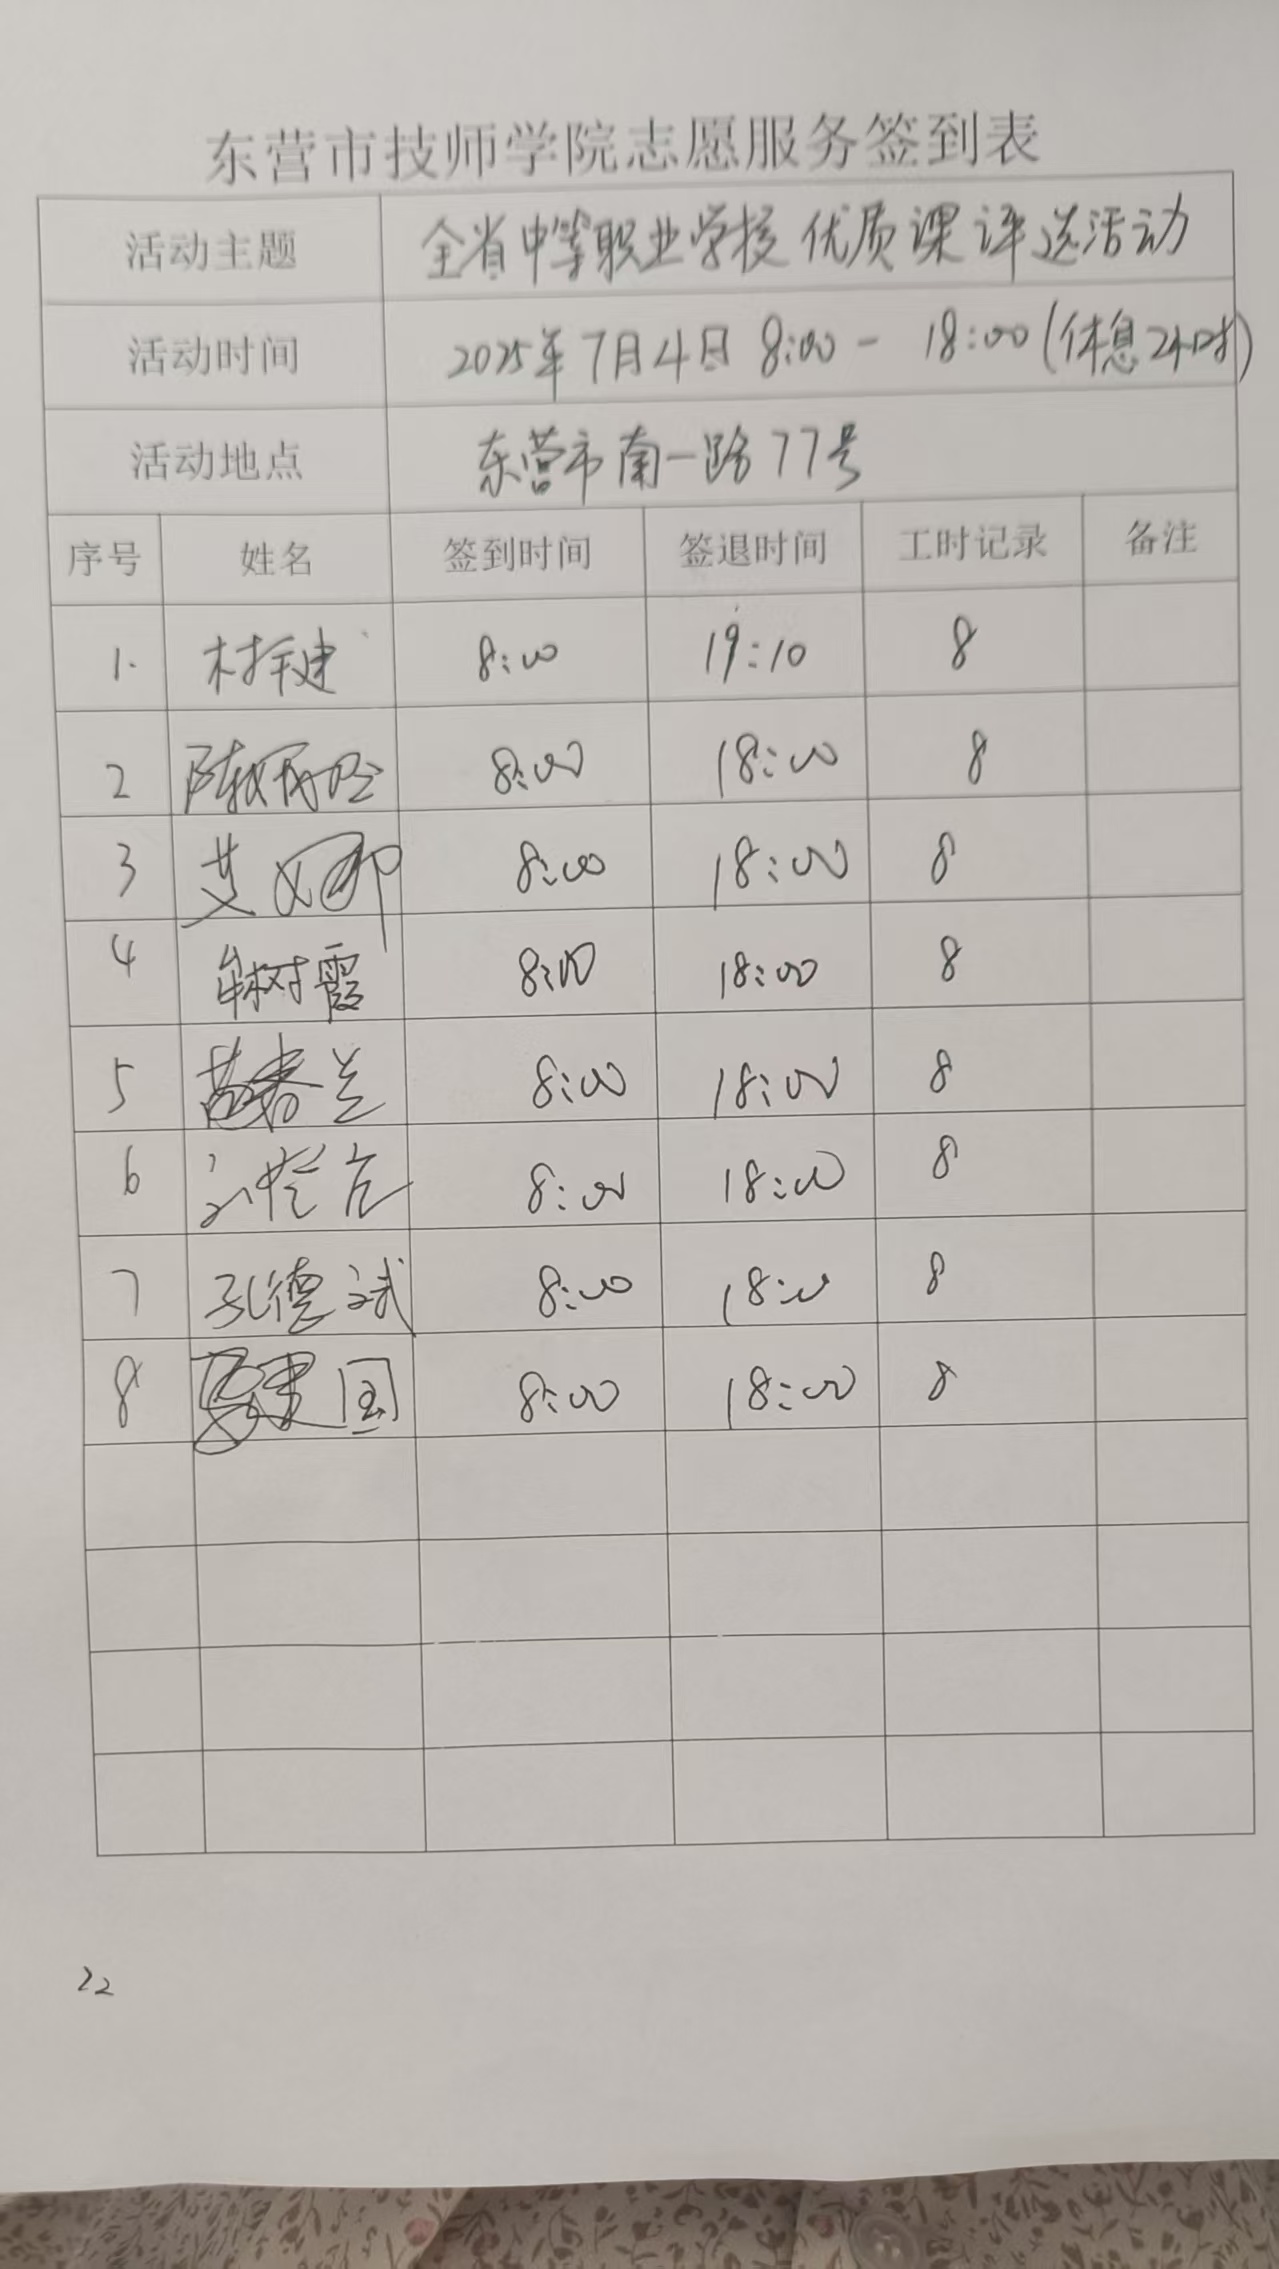 东营市技师学院志愿服务签到表
活动主题 全省中等职业学校优质课评选活动
活动时间 2025年7月4日 8:00 - 18:00 (休息2小时)
活动地点 东营市南一路77号
序号 姓名 签到时间 签退时间 工时记录 备注
1. 8:00 19:10 8
2 8:00 18:00 8
3 艾娜 8:00 18:00 8
4 牟树霞 8:00 18:00 8
5 苗春兰 8:00 18:00 8
6 8:00 18:00 8
7 孔德斌 8:00 18:00 8
8 建国 8:00 18:00 8
22